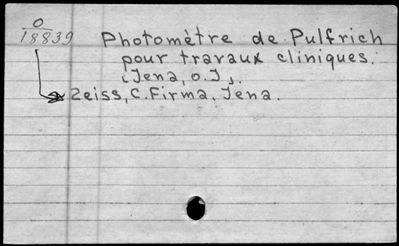 0
18839
Photomètre de Pulfrich
pour travaux cliniques.
(Jena, o.J).
Zeiss, C. Firma, Jena.